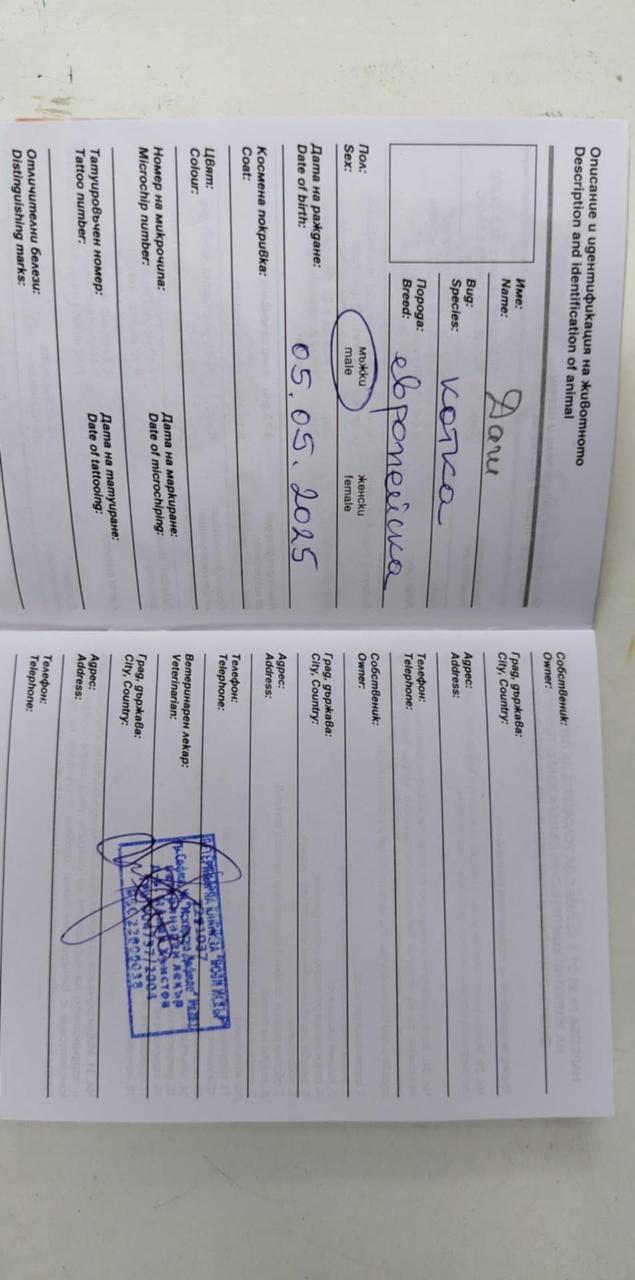 Описание и идентификация на животното
Description and identification of animal
Име: Даши
Name:
Вид: котка
Species:
Порода: европейска
Breed:
Пол: мъжки женски
Sex: male female
Дата на раждане: 05.05.2025
Date of birth:
Космена покривка:
Coat:
Цвят:
Colour:
Номер на микрочипа: Дата на маркиране:
Microchip number: Date of microchiping:
Татуировъчен номер: Дата на татуиране:
Tattoo number: Date of tattooing:
Отличителни белези:
Distinguishing marks:
Собственик:
Owner:
Град, държава:
City, Country:
Адрес:
Address:
Телефон:
Telephone:
Собственик:
Owner:
Град, държава:
City, Country:
Адрес:
Address:
Телефон:
Telephone:
Ветеринарен лекар:
Veterinarian:
Град, държава:
City, Country:
Адрес:
Address:
Телефон:
Telephone: